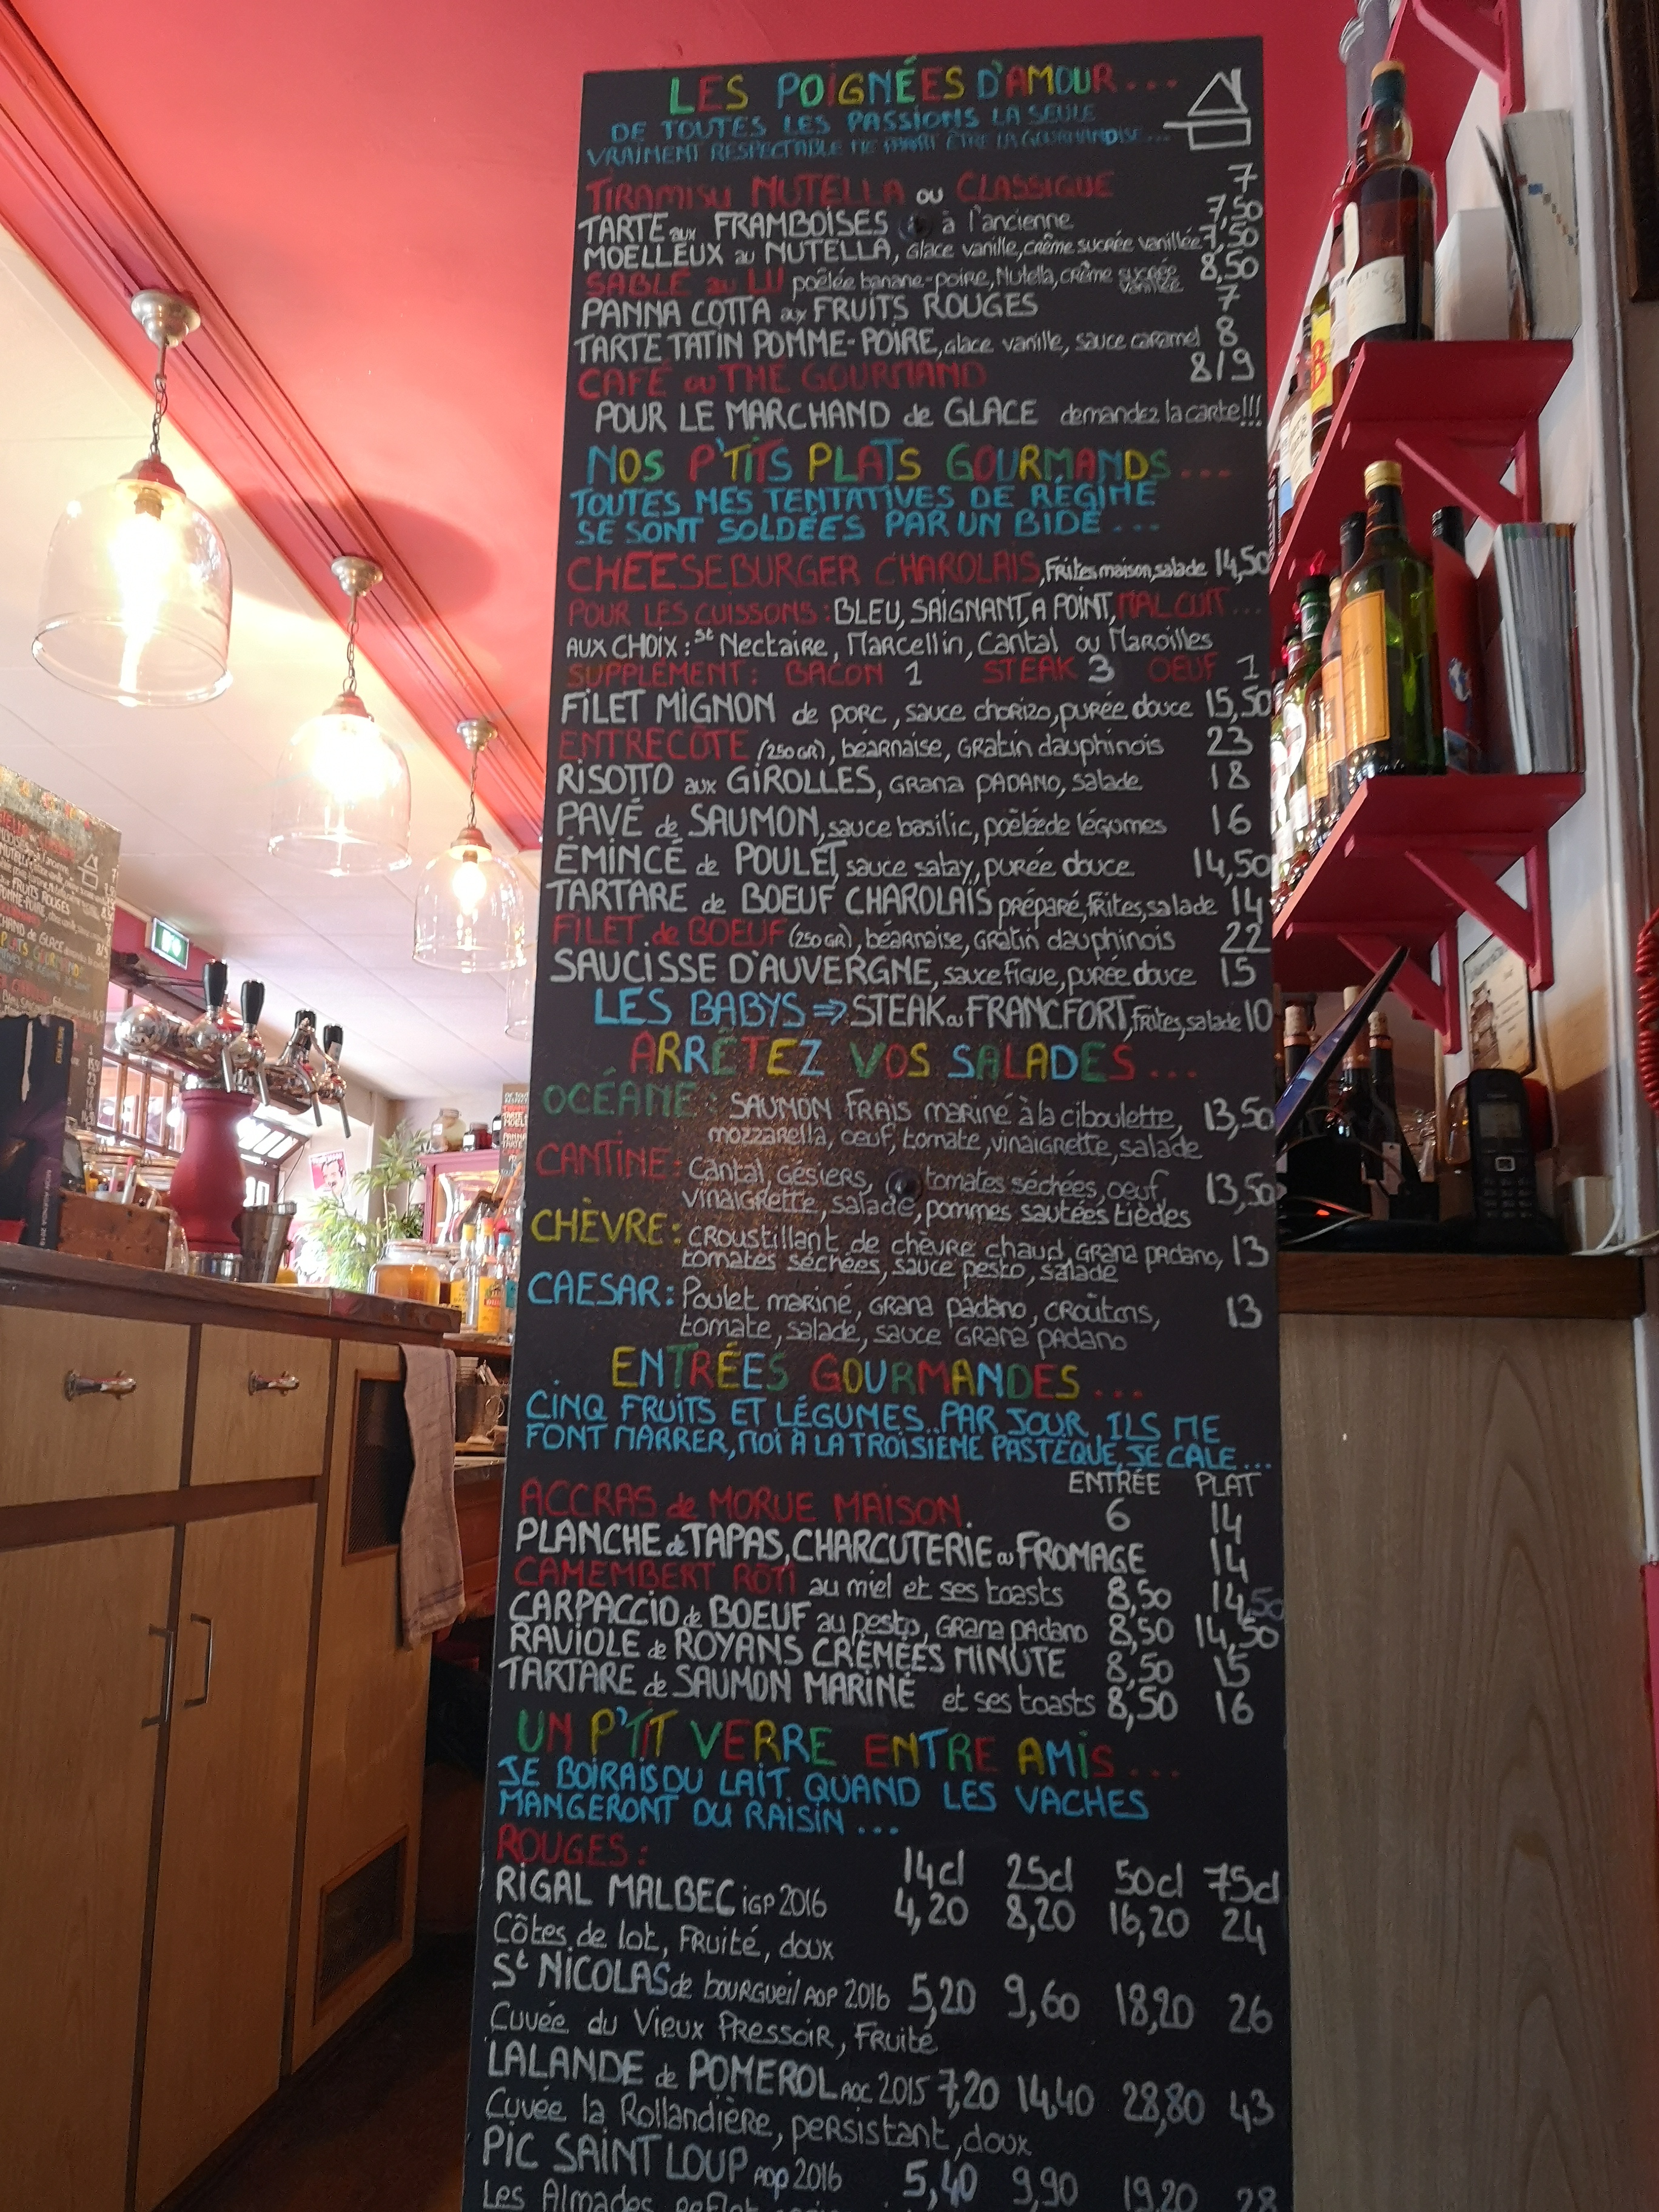 LES POIGNÉES D'AMOUR...
DE TOUTES LES PASSIONS LA SEULE
VRAIMENT RESPECTABLE ME PARAIT ÊTRE LA GOURMANDISE...
TIRAMISU NUTELLA ou CLASSIQUE 7
TARTE aux FRAMBOISES à l'ancienne 7,50
MOELLEUX au NUTELLA, Glace vanille, crême sucrée vanillée 7,50
SABLÉ au LU poêlée banane-poire, Nutella, crême sucrée vanillée 8,50
PANNA COTTA aux FRUITS ROUGES 7
TARTE TATIN POMME-POIRE, glace vanille, sauce caramel 8
CAFÉ ou THE GOURMAND 8/9
POUR LE MARCHAND de GLACE demandez la carte!!!
NOS P'TITS PLATS GOURMANDS...
TOUTES MES TENTATIVES DE RÉGIME
SE SONT SOLDÉES PAR UN BIDE...
CHEESEBURGER CHAROLAIS, Frites maison, salade 14,50
POUR LES CUISSONS: BLEU, SAIGNANT, A POINT, MAL CUIT...
AUX CHOIX: St Nectaire, Marcellin, Cantal ou Maroilles
SUPPLÉMENT: BACON 1 STEAK 3 OEUF 1
FILET MIGNON de porc, sauce chorizo, purée douce 15,50
ENTRECÔTE (250GR), béarnaise, Gratin dauphinois 23
RISOTTO aux GIROLLES, Grana PADANO, salade 18
PAVÉ de SAUMON, sauce basilic, poêlée de légumes 16
ÉMINCÉ de POULET, sauce satay, purée douce 14,50
TARTARE de BOEUF CHAROLAIS préparé, frites, salade 14
FILET de BOEUF (250GR), béarnaise, Gratin dauphinois 22
SAUCISSE D'AUVERGNE, sauce figue, purée douce 15
LES BABYS ⇒ STEAK ou FRANCFORT, frites, salade 10
ARRÊTEZ VOS SALADES...
OCÉANE: SAUMON FRAIS mariné à la ciboulette, 13,50
mozzarella, oeuf, tomate, vinaigrette, salade
CANTINE: Cantal, Gésiers, tomates séchées, oeuf, 13,50
vinaigrette, salade, pommes sautées tièdes
CHÈVRE: croustillant de chèvre chaud, Grana padano, 13
tomates séchées, sauce pesto, salade
CAESAR: Poulet mariné, Grana padano, croûtons, 13
tomate, salade, sauce Grana padano
ENTRÉES GOURMANDES...
CINQ FRUITS ET LÉGUMES.. PAR JOUR, ILS ME
FONT MARRER, MOI À LA TROISIÈME PASTÈQUE, JE CALE...
ENTRÉE PLAT
ACCRAS de MORUE MAISON. 6 14
PLANCHE de TAPAS, CHARCUTERIE ou FROMAGE 14
CAMEMBERT RÔTI au miel et ses toasts 8,50 14,50
CARPACCIO de BOEUF au pesto, Grana padano 8,50 14,50
RAVIOLE de ROYANS CRÉMÉES MINUTE 8,50 15
TARTARE de SAUMON MARINÉ et ses toasts 8,50 16
UN P'TIT VERRE ENTRE AMIS...
JE BOIRAIS DU LAIT QUAND LES VACHES
MANGERONT DU RAISIN...
ROUGES: 14cl 25cl 50cl 75cl
RIGAL MALBEC IGP 2016 4,20 8,20 16,20 24
Côtes de lot, Fruité, doux
St NICOLAS de bourgueil AOP 2016 5,20 9,60 18,20 26
Cuvée du Vieux Pressoir, Fruité
LALANDE de POMEROL AOC 2015 7,20 14,40 28,80 43
Cuvée la Rollandière, persistant, doux
PIC SAINT LOUP AOP 2016 5,40 9,90 19,20 28
Les Almades